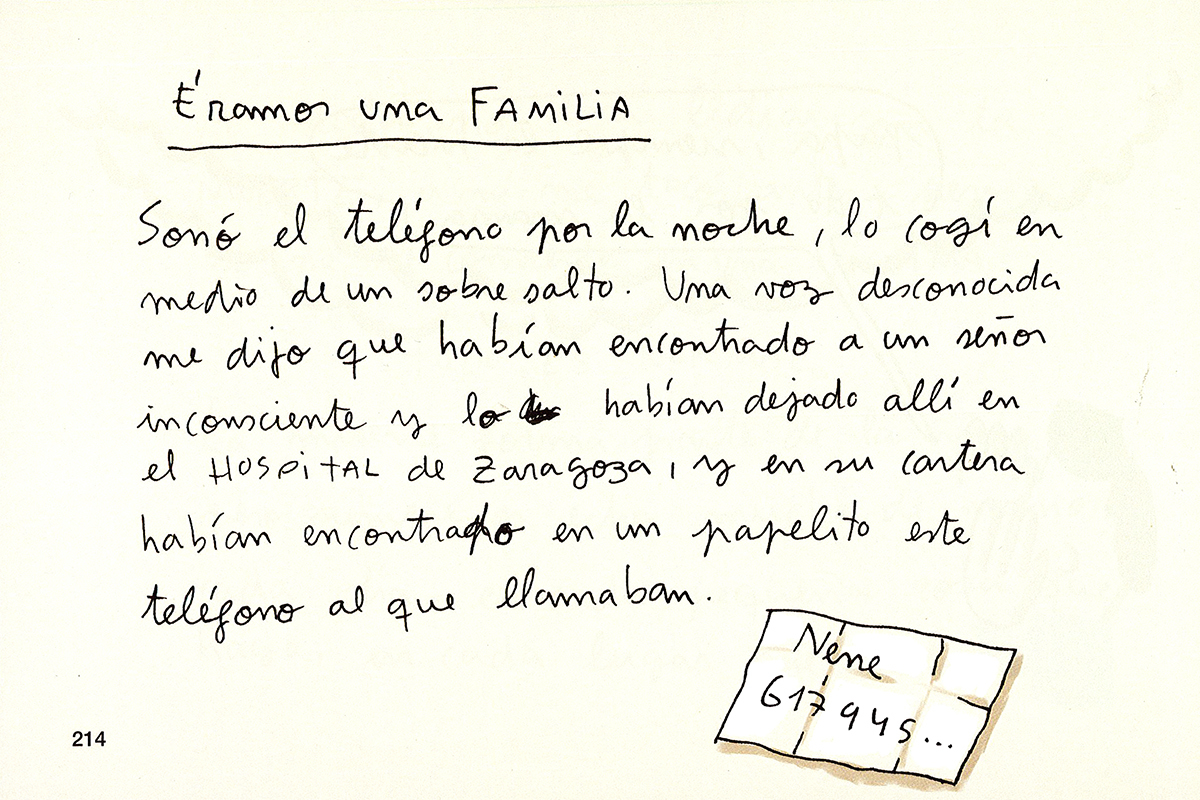 Éramos una FAMILIA
Sonó el teléfono por la noche, lo cogí en
medio de un sobresalto. Una voz desconocida
me dijo que habían encontrado a un señor
inconsciente y lo habían dejado allí en
el HOSPITAL de Zaragoza, y en su cartera
habían encontrado en un papelito este
teléfono al que llamaban.
Nene
617 945...
214